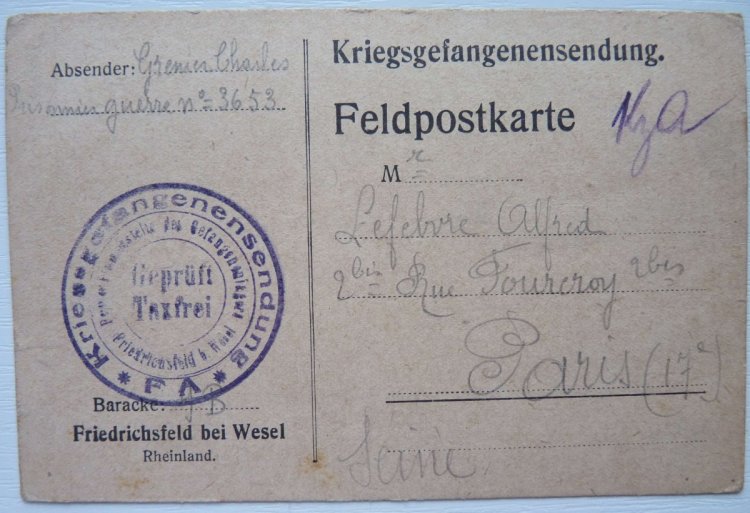 Absender: Grenier Charles
Prisonnier guerre n°= 3653
Kriegsgefangenensendung
Geprüft
Taxfrei
Friedrichsfeld b. Wesel
* F A *
Baracke: B
Friedrichsfeld bei Wesel
Rheinland.
Kriegsgefangenensendung.
Feldpostkarte
Mr
Lefebvre Alfred
2bis Rue Fourcroy 2bis
Paris (17e)
Seine